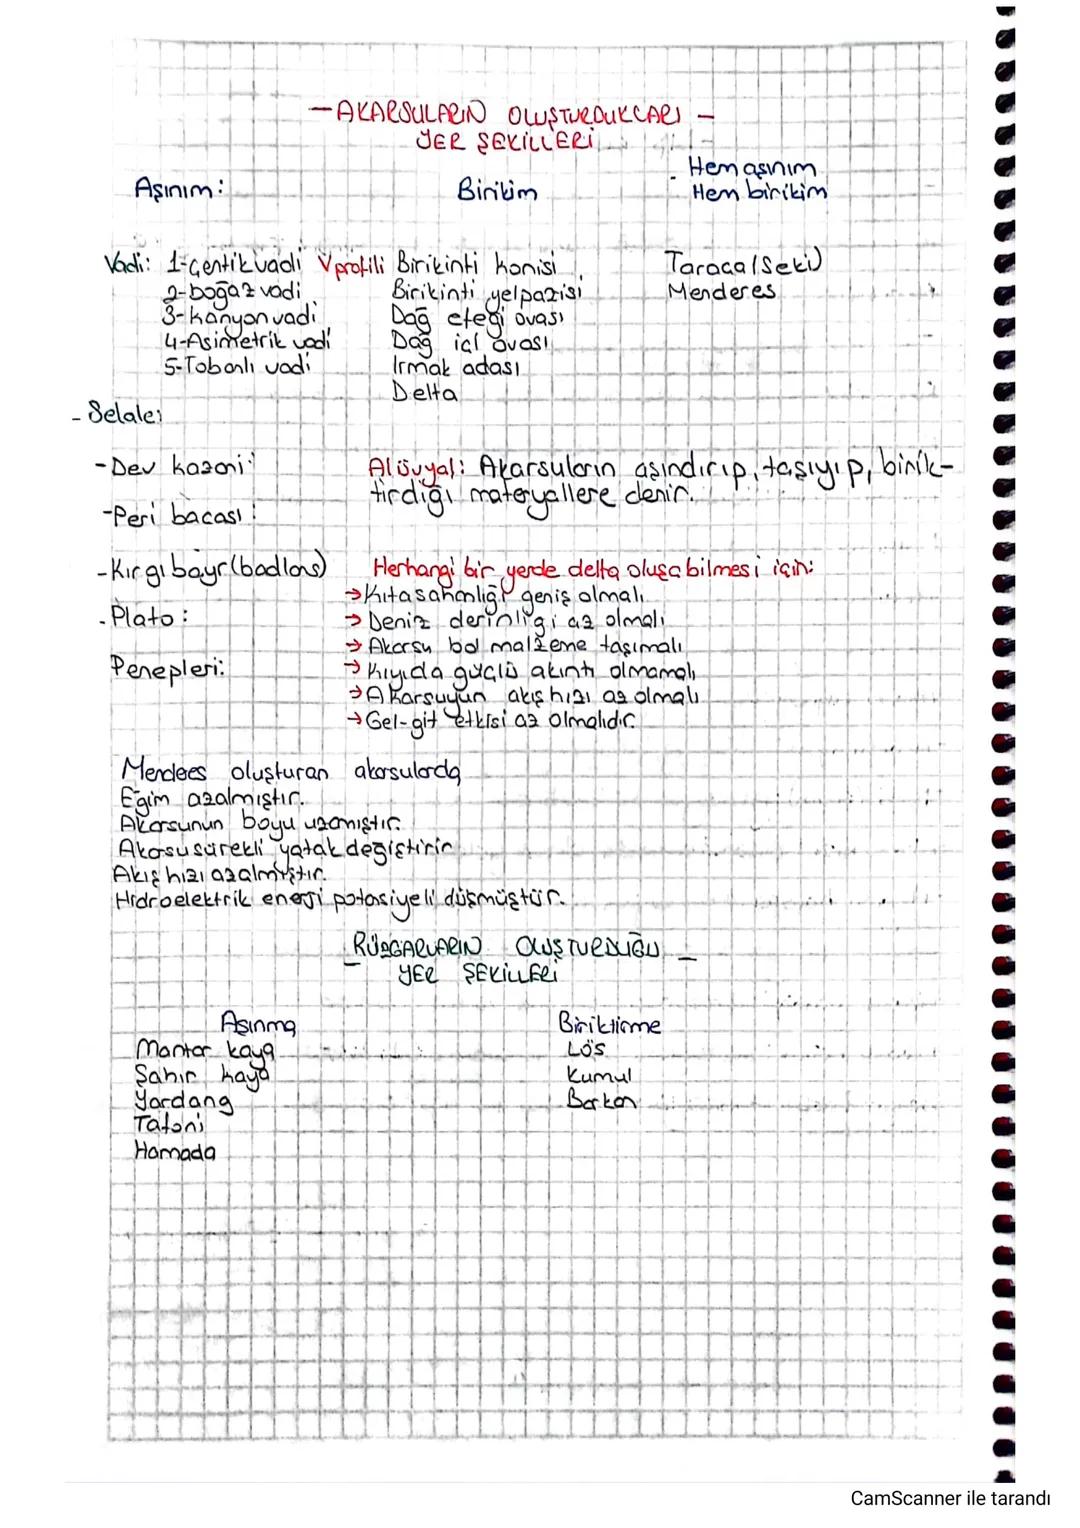 - AKARSULARIN OLUŞTURDUKLARI -
YER ŞEKİLLERİ
Aşınım:
Birikim
Hem aşınım
Hem birikim
Vadi: 1-Çentik vadi V profili
2-boğaz vadi
3-kanyon vadi
4-Asimetrik vadi
5-Tabanlı vadi
Birikinti konisi
Birikinti yelpazisi
Dağ eteği ovası
Dağ içi ovası
Irmak adası
Delta
Taraça (Seki)
Menderes
- Şelale:
-Dev kazanı:
-Peri bacası:
-Kırgıbayr (badlans)
-Plato:
Penepleri:
Alüvyal: Akarsuların aşındırıp, taşıyıp, birik-
tirdiği materyallere denir.
Herhangi bir yerde delta oluşabilmesi için:
→Kıta sahanlığı geniş olmalı.
→Deniz derinligi az olmalı
→Akarsu bol malzeme taşımalı
→Kıyıda güçlü akıntı olmamalı
→Akarsuyun akış hızı az olmalı
→Gel-git etkisi az olmalıdır.
Merdees oluşturan akarsularda
Eğim azalmıştır.
Akarsunun boyu uzamıştır.
Akasu sürekli yatak değiştirir
Akış hızı azalmıştır.
Hidroelektrik enerji potansiyeli düşmüştür.
- RÜZGARLARIN OLUŞTURDUĞU -
YER ŞEKİLLERİ
Aşınma
Mantar kaya
Şahir kaya
Yardang
Tafoni
Hamada
Biriktirme
Lös
Kumul
Barkan
CamScanner ile tarandı